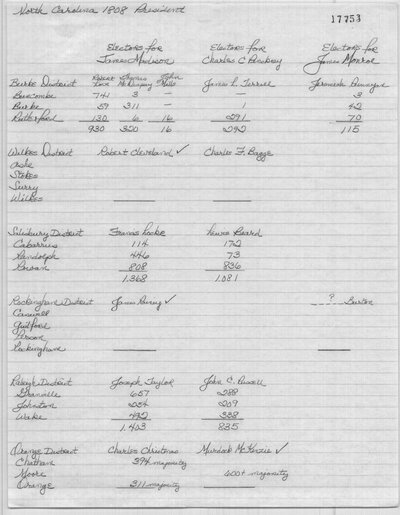 North Carolina 1808 President
17753
Electors for Electors for Electors for
James Madison Charles C Pinckney James Monroe
Burke District Robert Love Thomas McKimpsey John Mills James L. Terrell Jeremiah
Buncombe 741 3 — — 3
Burke 59 311 — 1 42
Rutherford 130 6 16 291 70
930 320 16 292 115
Wilkes District Robert Cleveland ✓ Charles F. Bagge
Ashe
Stokes
Surry
Wilkes
Salisbury District Francis Locke Lewis Beard
Cabarrus 114 172
Randolph 446 73
Rowan 808 836
1.368 1.081
Rockingham District James Rainey ✓ ? Burton
Caswell
Guilford
Person
Rockingham
Raleigh District Joseph Taylor John C. Russell
Granville 657 288
Johnston 254 209
Wake 492 338
1.403 835
Orange District Charles Christmas Murdock McKenzie ✓
Chatham 394 majority
Moore 600+ majority
Orange 311 majority